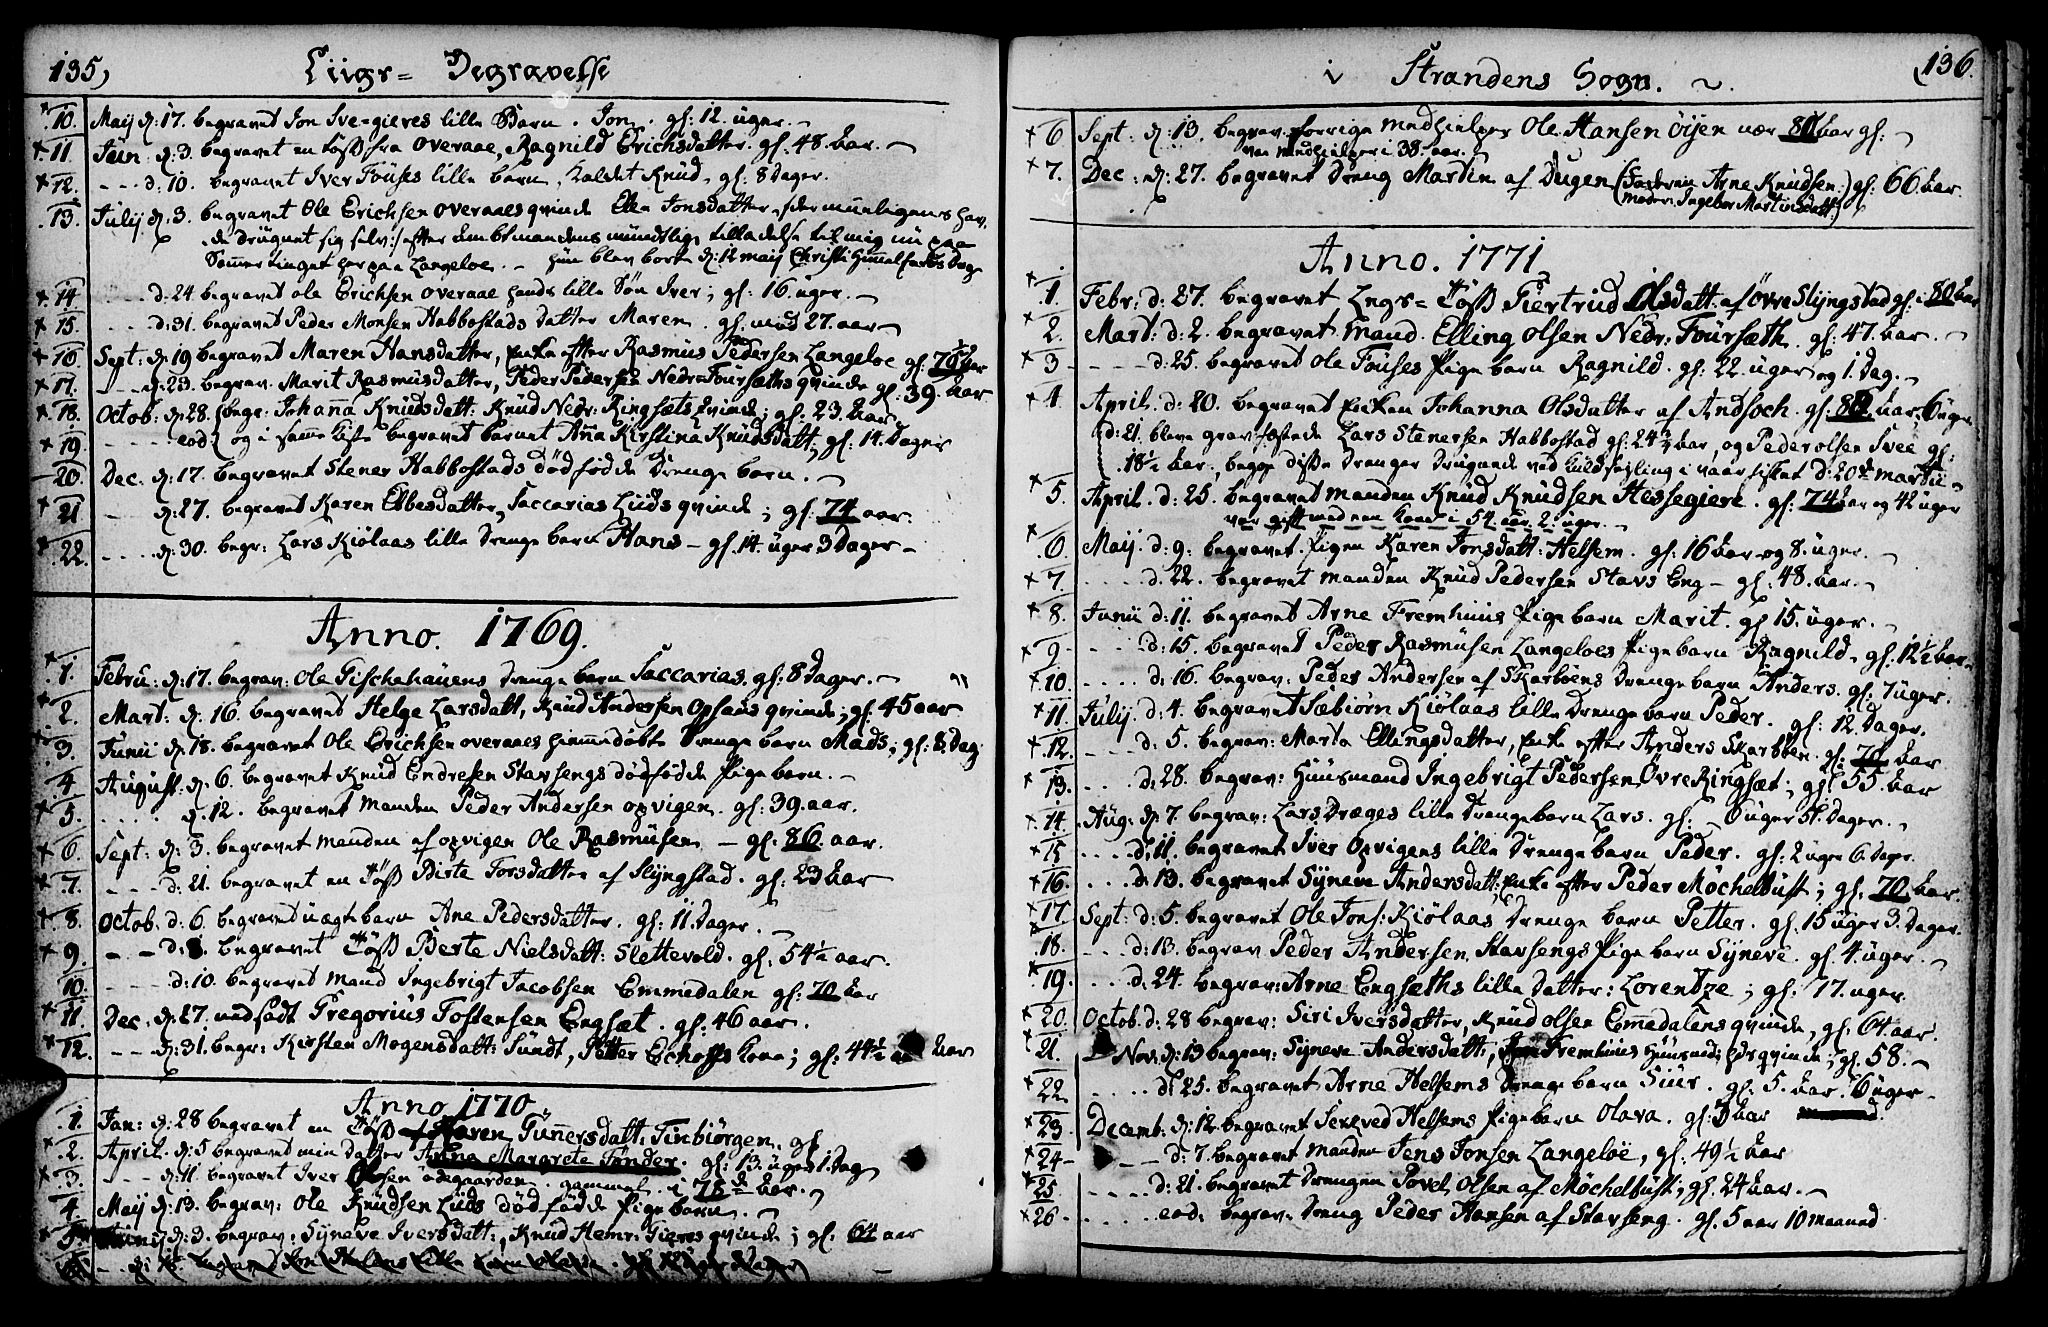 135)
Liigs= Begravelse
10. Maij d: 17. begravet Jon Sve=gieres lille Barn. Jon. gl: 12. uger.
11. Juni d: 3. begravet en Töss fra Overaae, Ragnild Erichsdatter. gl: 48. aar.
12. - - - d: 10. begravet Iver Fouses lille barn, kaldet Knud, gl: 8 Dager.
13. Julij d: 3. begravet Ole Erichsen Overaaes qvinde Elle Jonsdatter,
de drugnet sig selv :/ efter Ambtmandens mundtlige tilladelse til mig nu paa
Sommertinget her paa Langeloe. - hun blev borte d: 12 maij Christi Himmelfarts Dag
14. - - - d: 24 begravet Ole Erichsen Overaae hands lille Sön Iver; gl: 16. uger.
15. - - - d: 31. begravet Peder Monsen Habbostads datter Maren. gl: 27. aar
16. Sept. d: 19 begravet Maren Hansdatter, Enke efter Rasmus Pedersen Langeloe gl: 79½ aar
17. - - d: 23. begrav. Marit Rasmusdatter, Peder Pedersen Nedr=Foursæths qvinde gl: 39 aar
18. Octob. d: 28. begr: Johanna Knudsdatt: Knud Nedr: Ringsæts qvinde; gl: 23. aar
19. - - - eod: og i samme kiste begravet barnet Anna Kirstina Knudsdatt, gl: 14. Dager
20. Dec. d: 17. begravet Stener Habbostads dödfödde Drenge barn.
21 - d: 27. begravet Karen Ebbesdatter, Saccarias Luds qvinde; gl: 74 aar.
22. - - - d: 30. begr: Lars Kiölaas lille Drenge barn Hans - gl: 14. uger 3 Dager -
Anno. 1769.
1. Febru: d: 17. begrav: Ole Fischehauens Drenge barn Saccarias. gl: 8 dager.
2. Mart: d. 16. begravet Helge Larsdatt, Knud Andersen Opshus qvinde; gl: 45 aar
3. Junii d: 18. begravet Ole Erichsen Overaaes hiemmedöbte Drenge barn Mads; gl: 8. Dag
4 August. d: 6. begravet Knud Endresen Stavsengs dödfödde Pige barn.
5. - - - d: 12. begravet manden Peder Andersen Opvigen. gl: 39. aar.
6. Sept: d: 3. begravet manden af Opvigen Ole Rasmusen - gl: 86. aar.
7. - - - d: 21. begravet en Töss Birte Torsdatter af Slyngstad. gl: 23 aar
8. Octob. d. 6. begravet uægte barn Ane Pedersdatter. gl: 11. Dager.
9. - - d: 8. begravet Töss Berte Nielsdatt: Slettevold. gl: 54½ aar.
10. - - - d: 10. begravet mand Ingebrigt Jacobsen Emmedalen gl: 70 aar
11. Dec. d: 27. nedsadt Gregorius Tostensen Engsæt. gl: 46 aar.
12. - - d: 31. begr: Kirsten Mogensdatt: Sundt, Petter Eckhoffs kone; gl: 44½ aar
Anno 1770
1. Jan: d: 28 begravet en Töss Karen Gunnersdatt: Finbiörgen, gl
2. April. d: 5 begravet min datter Anna Margrete Tönder. gl: 13. uger 1 dag
3. - - - d: 11. begravet Iver Olsen ödegaarden. gammel i 78de aar.
4. Maij d: 13. begrav: Ole Knudsen Luds dödfödde Pige barn.
5 d: 3. begrav: Syneve Iversdatt:, Knud Hemr: Gieres qvinde; gl. 64 aar
i Strandens Sogn.
(136.
6 Sept: d: 13. begrav. forrige medhielper Ole Hansen Öijen nær 80 aar gl:
var medhielper i 38. aar.
7. Dec: d: 27. begravet Dreng Martin af Dugen (Faderen Arne Knudsen) gl: 66 aar
(moder. Ingebor Martinsdatt)
Anno. 1771
1. Febr: d: 27. begravet Legs= Töss Giertrud Olsdatt. af Övre Slyngstad gl: 80 aar
2. Mart: d: 2. begravet mand. Elling Olsen Nedr. Foursæth. gl: 47. aar.
3 - - - d: 25. begravet Ole Fouses Pige barn Ragnild. gl: 22. uger og 1. Dag.
4. April. d: 20. begravet Enken Johanna Olsdatter af Andsoch. gl: 80 aar, 6 uger
d: 21. bleve gravfæstede Lars Stenersen Habbostad gl: 24½ aar, og Peder Olsen Svee gl:
18½ aar, begge disse Drenger drugnede ved kuldseyling i vaarfisket d: 20de Martii
5. April. d: 25. begravet manden Knud Knudsen Hessegiere. gl: 74 aar og 42 uger
var gift med een kone i 54 aar 2. uger.
6. Maij. d: 9. begravet. Pigen Karen Jonsdatt: Helsem. gl: 16 aar og 8. uger.
7. - - - d. 22. begravet manden Knud Pedersen Stavs Eng - gl: 48. aar.
8. Junii d: 11. begravet Arne Fremhuus Pige barn Marit. gl: 15. uger.
9 - - - d: 15. begravet Peder Rasmusen Langeloes Pige barn Ragnild, gl: 12½ aar
10. - - - d: 16. begrav. Peder Andersen af Skarböens drenge barn Anders. gl: 7 uger.
11. Julij. d: 4. begravet Sæbiörn Kiölaas lille Drenge barn Peder. gl: 12. Dager.
12. - - - d: 5. begrav: Marta Ellingsdatter, Enke efter Anders Skarböen. gl: 70 aar
13. - - - d: 28. begrav: Huusmand Ingebrigt Pedersen Övre Ringsæt; gl: 55. aar
14. Aug: d: 7. begrav: Lars Dræges lille Drenge barn Lars. gl: - 6 uger 5. Dager.
15 - - - d. 11. begravet Iver Opvigens lille Drenge barn Peder. gl: 2 uger 6. Dager.
16. - - - d. 13. begravet Syneve Andersdatt: Enke efter Peder Möchelbust; gl: 70 aar.
17. Sept: d: 5. begravet Ole Jons: Kiölaas Drenge barn Petter. gl: 15 uger 3. Dager.
18. - - - d: 13. begrav Peder Andersen Stavsengs Pige barn Syneve. gl: 4. uger.
19. - - - d. 24. begrav: Arne Engsæths lille datter: Lorentze; gl: 17. uger.
20. Octob. d: 28 begrav: Siri Iversdatter, Knud Olsen Emmedalens qvinde, gl: 64. aar.
21. - Nov. d: 13 begrav: Syneve Andersdatt:, Fremhuus Huusmds qvinde; gl: 58.
22 - - - d: 25. begravet Arne Helsems Drenge barn Siur. gl: 5. aar. 6 uger.
23. Decemb. d: 12. begravet Seseved Helsems Pige barn Olava. gl: aar
24- - - d: 7. begravet manden Jens Jonsen Langelöe, gl: 49½ aar
25 - - - d: 21. begravet Drengen Povel Olsen af Möchelbust; gl: 24 aar.
26 - - - eod: begrav: Dreng Peder Hansen af Stavseng. gl: 5 aar 10 maaned